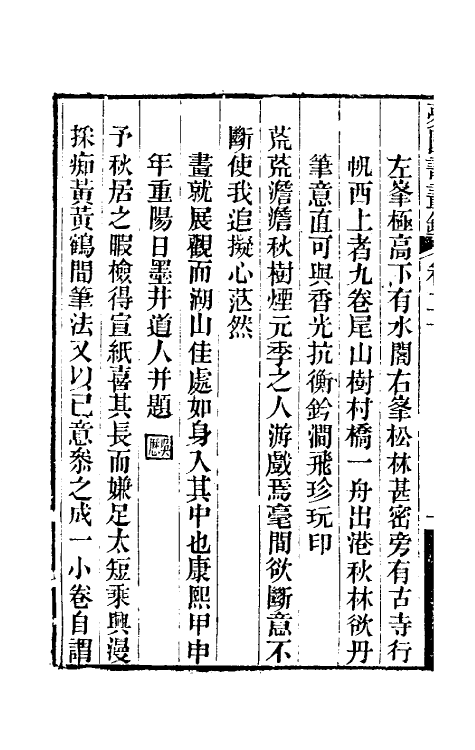 左峯極高下有水閣右峯松林甚密旁有古寺行
帆西上者九卷尾山樹村橋一舟出港秋林欲丹
筆意直可與香光抗衡鈐澗飛珍玩印
荒荒澹澹秋樹煙元季之人游戲焉毫間欲斷意不
斷使我追擬心茫然
畫就展觀而湖山佳處如身入其中也康熙甲申
年重陽日墨井道人并題 吳歷
予秋居之暇檢得宣紙喜其長而嫌足太短乘興漫
採痴黃黃鶴間筆法又以己意叅之成一小卷自謂